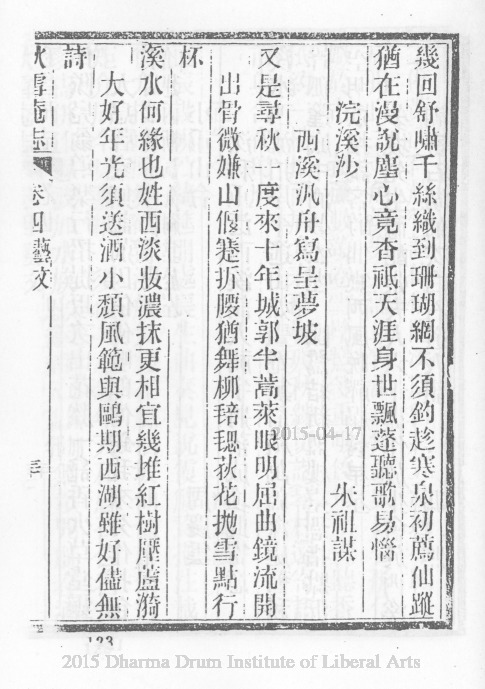 幾回舒嘯千絲織到珊瑚網不須釣趁寒泉初薦仙蹤
猶在漫說塵心竟杳祇天涯身世飄蓬聽歌易惱
浣溪沙 朱祖謀
西溪汎舟寫呈夢坡
又是尋秋一度來十年城郭半蒿萊眼明屈曲鏡流開
出骨微嫌山偃蹇折腰猶舞柳毰毸荻花拋雪點行
杯
溪水何緣也姓西淡妝濃抹更相宜幾堆紅樹壓蓋漪
大好年光須送酒小頹風範與鷗期西湖雖好儘無
詩
秋雪庵志 卷四藝文
123
2015-04-17
2015 Dharma Drum Institute of Liberal Arts